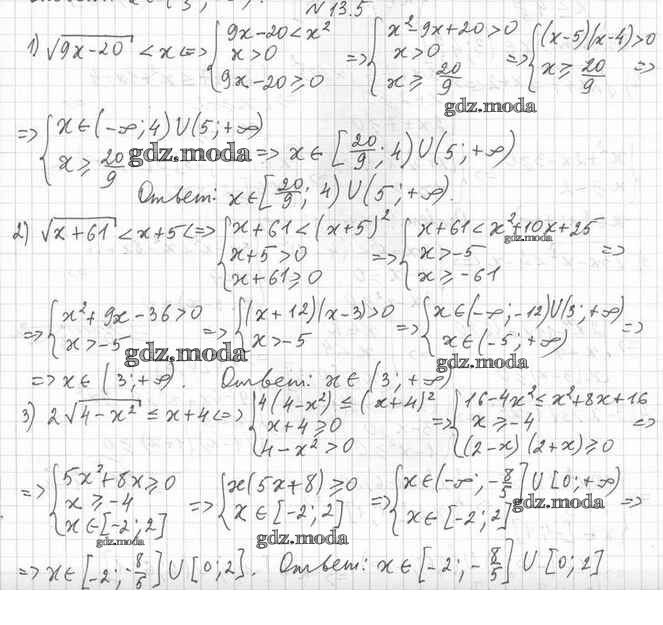 N 13.5
1) √(9x-20) < x <=> { 9x-20 < x² ; x > 0 ; 9x-20 ≥ 0 => { x²-9x+20 > 0 ; x > 0 ; x ≥ 20/9 => { (x-5)(x-4) > 0 ; x ≥ 20/9 =>
gdz.moda
=> { x ∈ (-∞; 4) ∪ (5; +∞) ; x ≥ 20/9 => x ∈ [20/9; 4) ∪ (5; +∞)
gdz.moda
Ответ: x ∈ [20/9; 4) ∪ (5; +∞).
2) √(x+61) < x+5 <=> { x+61 < (x+5)² ; x+5 > 0 ; x+61 ≥ 0 => { x+61 < x²+10x+25 ; x > -5 ; x ≥ -61 =>
gdz.moda
=> { x²+9x-36 > 0 ; x > -5 => { (x+12)(x-3) > 0 ; x > -5 => { x ∈ (-∞; -12) ∪ (3; +∞) ; x ∈ (-5; +∞) =>
gdz.moda
gdz.moda
=> x ∈ (3; +∞). Ответ: x ∈ (3; +∞)
3) 2√(4-x²) ≤ x+4 <=> { 4(4-x²) ≤ (x+4)² ; x+4 ≥ 0 ; 4-x² > 0 => { 16-4x² ≤ x²+8x+16 ; x ≥ -4 ; (2-x)(2+x) ≥ 0 =>
=> { 5x²+8x ≥ 0 ; x ≥ -4 ; x ∈ [-2; 2] => { x(5x+8) ≥ 0 ; x ∈ [-2; 2] => { x ∈ (-∞; -8/5] ∪ [0; +∞) ; x ∈ [-2; 2] =>
gdz.moda
gdz.moda
gdz.moda
=> x ∈ [-2; -8/5] ∪ [0; 2]. Ответ: x ∈ [-2; -8/5] ∪ [0; 2]